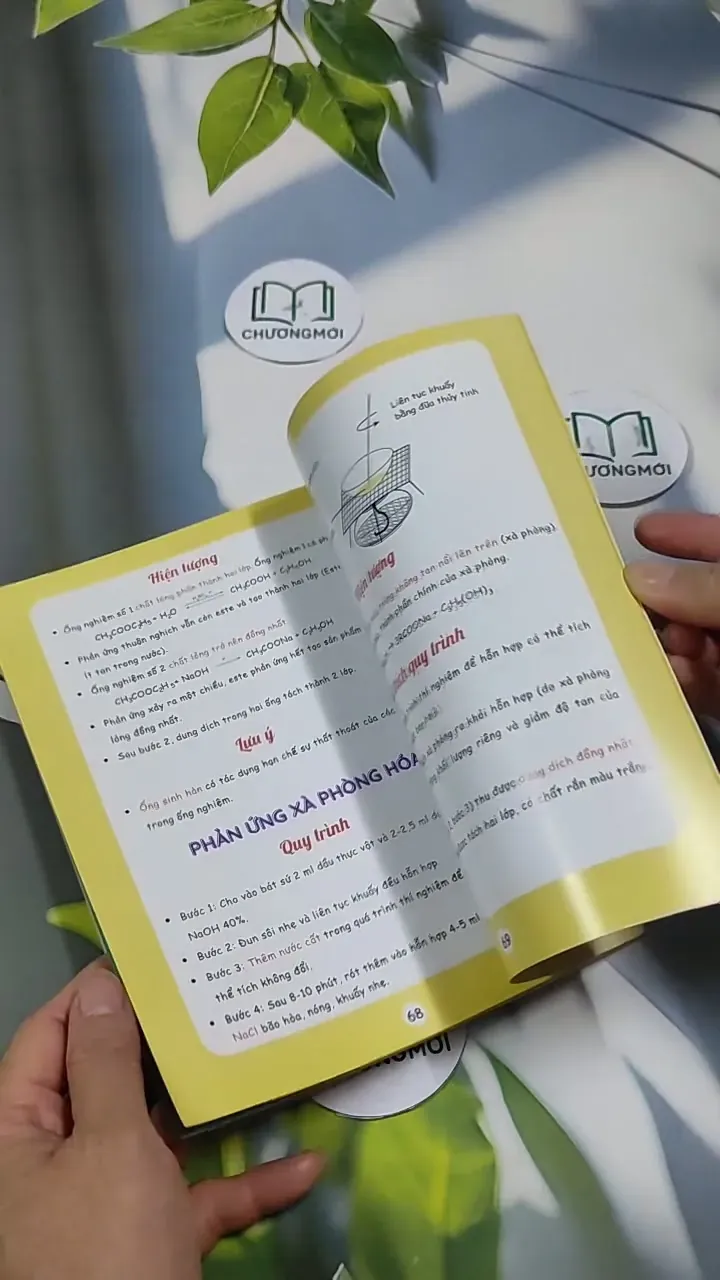 CHƯƠNGMỚI
ƯƠNGMỚI
Hiện tượng
• Ống nghiệm số 1 chất lỏng phân thành hai lớp. Ống nghiệm
CH₃COOC₂H₅ + H₂O CH₃COOH + C₂H₅OH
• Phản ứng thuận nghịch vẫn còn este và tạo thành hai lớp (Este
ít tan trong nước).
• Ống nghiệm số 2 chất lỏng trở nên đồng nhất
CH₃COOC₂H₅ + NaOH → CH₃COONa + C₂H₅OH
• Phản ứng xảy ra một chiều, este phản ứng hết tạo sản phẩm
lỏng đồng nhất.
• Sau bước 2, dung dịch trong hai ống tách thành 2 lớp.
Lưu ý
• Ống sinh hàn có tác dụng hạn chế sự thất thoát của các
trong ống nghiệm.
PHẢN ỨNG XÀ PHÒNG HÓA
Quy trình
• Bước 1: Cho vào bát sứ 2 ml dầu thực vật và 2-2,5 ml
NaOH 40%.
• Bước 2: Đun sôi nhẹ và liên tục khuấy đều hỗn hợp
• Bước 3: Thêm nước cất trong quá trình thí nghiệm để
thể tích không đổi.
• Bước 4: Sau 8-10 phút, rót thêm vào hỗn hợp 4-5 ml
NaCl bão hòa, nóng, khuấy nhẹ.
68
Liên tục khuấy
bằng đũa thủy tinh
tượng
không tan nổi lên trên (xà phòng).
thành phần chính của xà phòng.
3RCOONa + C₃H₅(OH)₃
quy trình
thí nghiệm để hỗn hợp có thể tích
xà phòng ra khỏi hỗn hợp (do xà phòng
khối lượng riêng và giảm độ tan của
bước 3) thu được dung dịch đồng nhất
tách hai lớp, có chất rắn màu trắng
69